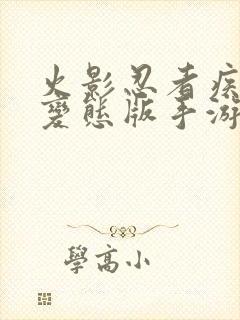 火影忍者疾
變態版手游
學高小